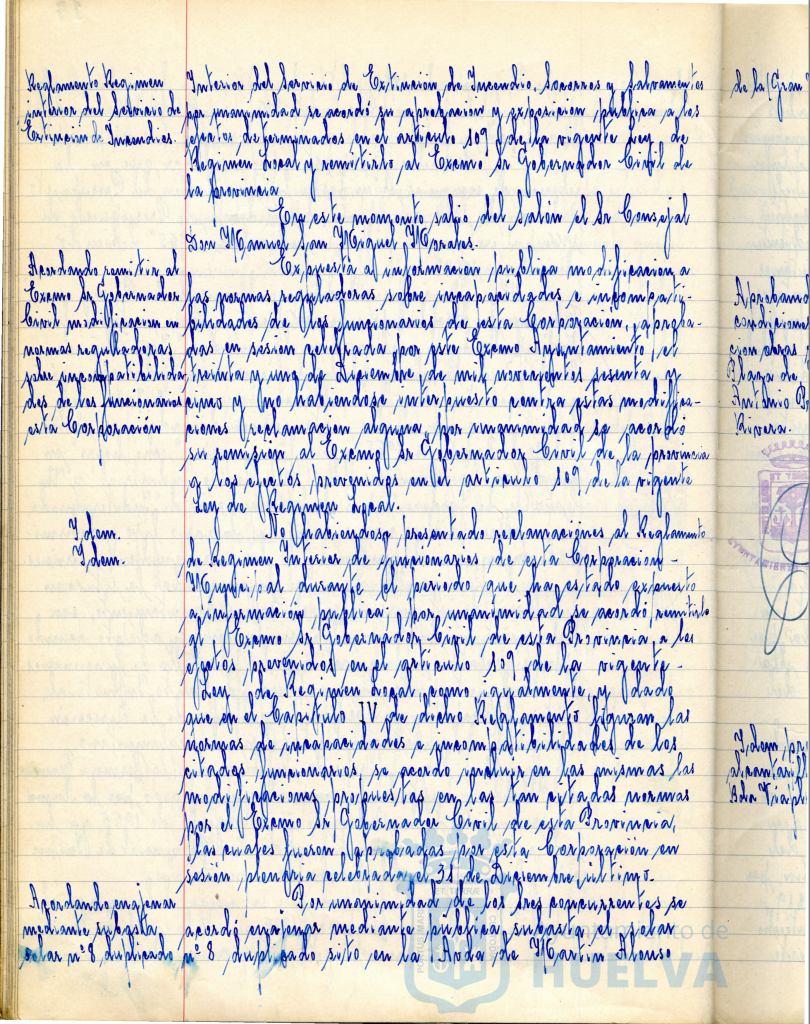 Reglamento Regimen
interior del Servicio de
Extinción de Incendios.
Interior del Servicio de Extinción de Incendio, Socorros y Salvamentos
por unanimidad se acordó su aprobacion y exposición publica a los
efectos determinados en el articulo 109 de la vigente Ley de
Regimen Local y remitirlo al Excmo Sr Gobernador Civil de
la provincia
En este momento salió del Salón el Sr Consejal
Don Manuel San Miguel Morales.
Acordando remitir al
Excmo Sr Gobernador
Civil modificacion en
normas reguladoras
sobre incompatibilida
des de los funcionarios
esta Corporación
Expuesta a informacion publica modificacion a
las normas reguladoras sobre incapacidades e incompati-
bilidades de los funcionarios de esta Corporación, aproba-
das en sesión celebrada por este Excmo Ayuntamiento, el
treinta y uno de Diciembre de mil novecientos sesenta y
cinco y no habiendose interpuesto contra estas modifica-
ciones reclamacion alguna, por unanimidad se acordó
su remisión al Excmo Sr Gobernador Civil de la provincia
a los efectos prevenidos en el articulo 109 de la vigente
Ley de Regimen Local.
Idem.
Idem.
No habiendose presentado reclamaciones al Reglamento
de Regimen Interior de funcionarios de esta Corporación
Municipal durante el periodo que ha estado expuesto
a informacion publica; por unanimidad se acordó remitirlo
al Excmo Sr Gobernador Civil de esta Provincia a los
efectos prevenidos en el articulo 109 de la vigente
Ley de Regimen Local, como igualmente, y dado
que en el Capitulo IV de dicho Reglamento figuran las
normas de incapacidades e incompatibilidades de los
citados funcionarios, se acordo incluir en las mismas las
modificaciones propuestas en las tan citadas normas
por el Excmo Sr Gobernador Civil de esta Provincia,
las cuales fueron aprobadas por esta Corporación en
sesión plenaria celebrada el 31 de Diciembre último.
Acordando enajenar
mediante subasta
solar nº 8 duplicado
Por unanimidad de los Sres concurrentes se
acordó enajenar mediante publica subasta el solar
nº 8 duplicado sito en la Avda de Martin Alonso
de la Gran
Aprobando
condicion
cion obras
Plaza de
Antonio
Rivera.
Idem,
alcantaril
HUELVA